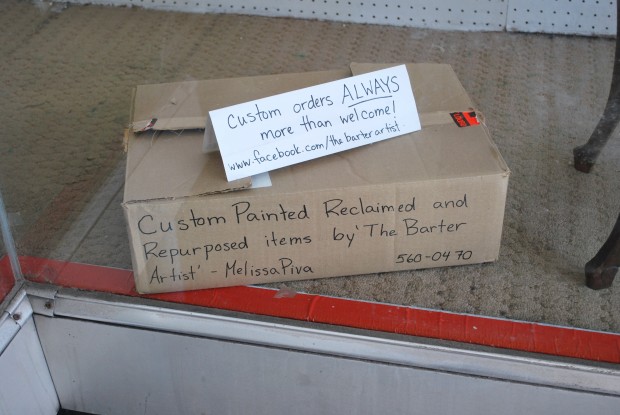 Custom orders ALWAYS
more than welcome!
www.facebook.com/thebarterartist
Custom Painted Reclaimed and
Repurposed items by 'The Barter
Artist' - Melissa Piva
560-0470